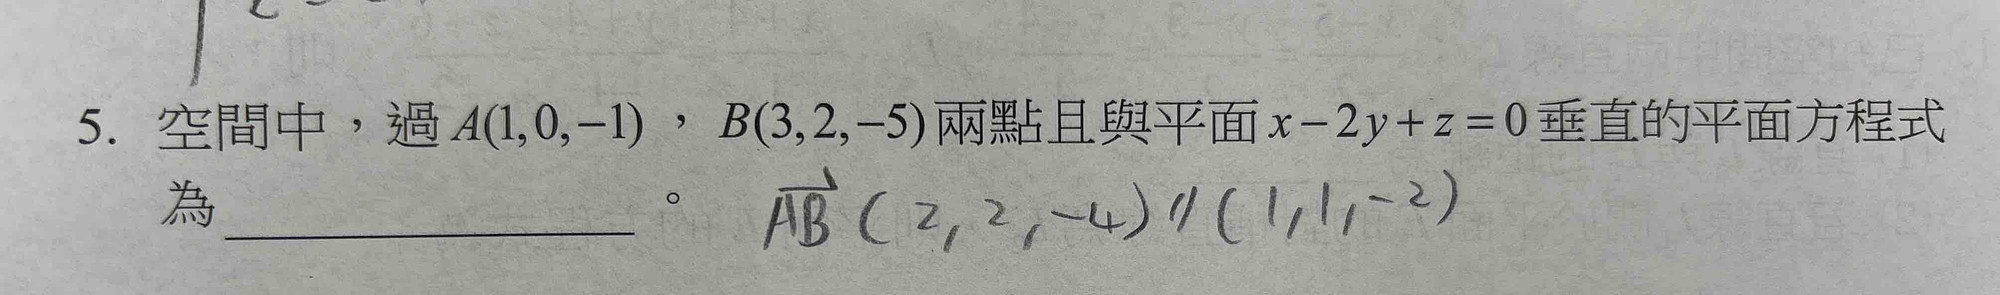 5. 空間中，過 A(1,0,−1)，B(3,2,−5) 兩點且與平面 x−2y+z=0 垂直的平面方程式
為＿＿＿＿＿＿＿＿。 AB (2,2,−4) // (1,1,−2)